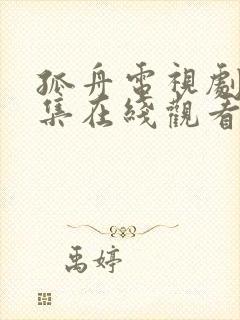 孤舟電視劇
集在綫觀看
禹婷